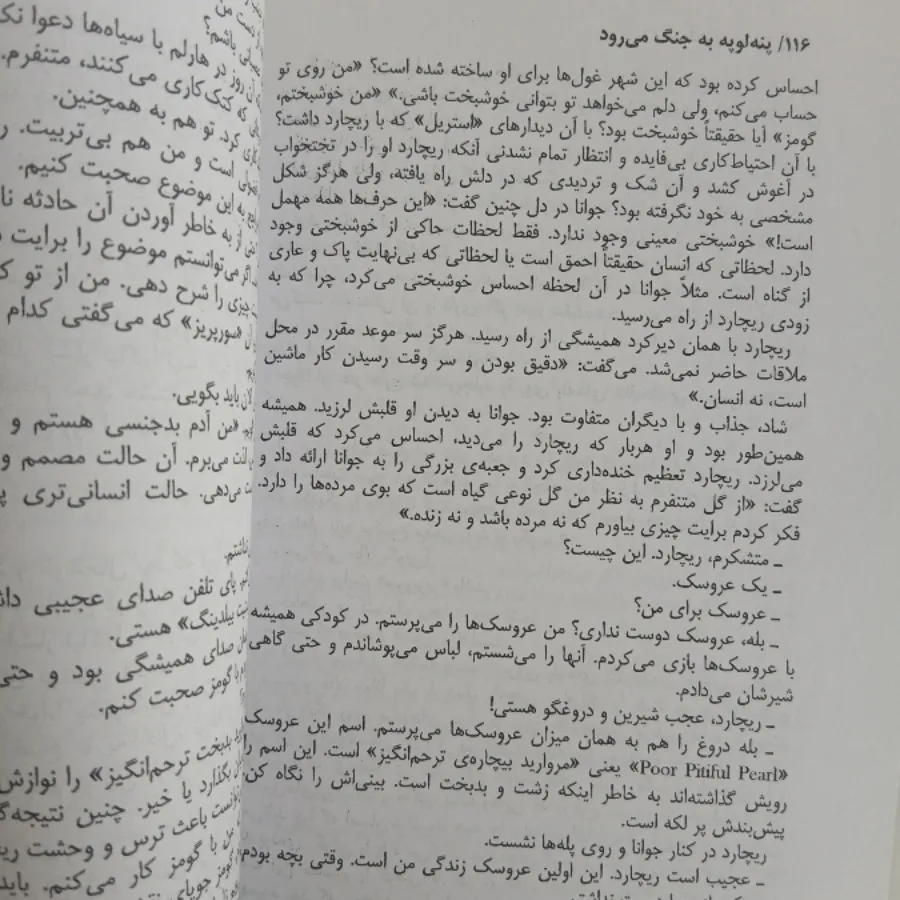 ۱۱۶/ پنه‌لوپه به جنگ می‌رود
احساس کرده بود که این شهر غول‌ها برای او ساخته شده است؟ «من روی تو
حساب می‌کنم، ولی دلم می‌خواهد تو بتوانی خوشبخت باشی.» «من خوشبختم،
گومز» آیا حقیقتاً خوشبخت بود؟ با آن دیدارهای «استریل» که با ریچارد داشت؟
با آن احتیاط‌کاری بی‌فایده و انتظار تمام نشدنی آنکه ریچارد او را در تختخواب
در آغوش کشد و آن شک و تردیدی که در دلش راه یافته، ولی هرگز شکل
مشخصی به خود نگرفته بود؟ جوانا در دل چنین گفت: «این حرف‌ها همه مهمل
است!» خوشبختی معینی وجود ندارد. فقط لحظات حاکی از خوشبختی وجود
دارد. لحظاتی که انسان حقیقتاً احمق است یا لحظاتی که بی‌نهایت پاک و عاری
از گناه است. مثلاً جوانا در آن لحظه احساس خوشبختی می‌کرد، چرا که به
زودی ریچارد از راه می‌رسید.
ریچارد با همان دیرکرد همیشگی از راه رسید. هرگز سر موعد مقرر در محل
ملاقات حاضر نمی‌شد. می‌گفت: «دقیق بودن و سر وقت رسیدن کار ماشین
است، نه انسان.»
شاد، جذاب و با دیگران متفاوت بود. جوانا به دیدن او قلبش لرزید. همیشه
همین‌طور بود و او هربار که ریچارد را می‌دید، احساس می‌کرد که قلبش
می‌لرزد. ریچارد تعظیم خنده‌داری کرد و جعبه‌ی بزرگی را به جوانا ارائه داد و
گفت: «از گل متنفرم به نظر من گل نوعی گیاه است که بوی مرده‌ها را دارد.
فکر کردم برایت چیزی بیاورم که نه مرده باشد و نه زنده.»
ـ متشکرم، ریچارد. این چیست؟
ـ یک عروسک.
ـ عروسک برای من؟
ـ بله، عروسک دوست نداری؟ من عروسک‌ها را می‌پرستم. در کودکی همیشه
با عروسک‌ها بازی می‌کردم. آنها را می‌شستم، لباس می‌پوشاندم و حتی گاهی
شیرشان می‌دادم.
ـ ریچارد، عجب شیرین و دروغگو هستی!
ـ بله دروغ را هم به همان میزان عروسک‌ها می‌پرستم. اسم این عروسک
«Poor Pitiful Pearl» یعنی «مروارید بیچاره‌ی ترحم‌انگیز» است. این اسم را
رویش گذاشته‌اند به خاطر اینکه زشت و بدبخت است. بینی‌اش را نگاه کن.
پیش‌بندش پر لکه است.
ریچارد در کنار جوانا و روی پله‌ها نشست.
ـ عجیب است ریچارد. این اولین عروسک زندگی من است. وقتی بچه بودم
باشم؟
روز در هارلم با سیاه‌ها دعوا
که کتک‌کاری می‌کنند، متنفرم.
کرد. تو هم به همچنین.
است و من هم بی‌تربیت.
به این موضوع صحبت کنیم.
به خاطر آوردن آن حادثه
می‌توانستم موضوع را برایت
چیزی را شرح دهی. من از تو
«سورپریز» که می‌گفتی کدام
باید بگویی.
«من آدم بدجنسی هستم و
لذت می‌برم. آن حالت مصمم و
می‌دهی. حالت انسانی‌تری
پای تلفن صدای عجیبی
بیلدینگ» هستی.
صدای همیشگی بود و حتی
با گومز صحبت کنم.
بدبخت ترحم‌انگیز» را نوازش
بگذارد یا خیر. چنین
باعث ترس و وحشت
با گومز کار می‌کنم. باید
گومز جویای